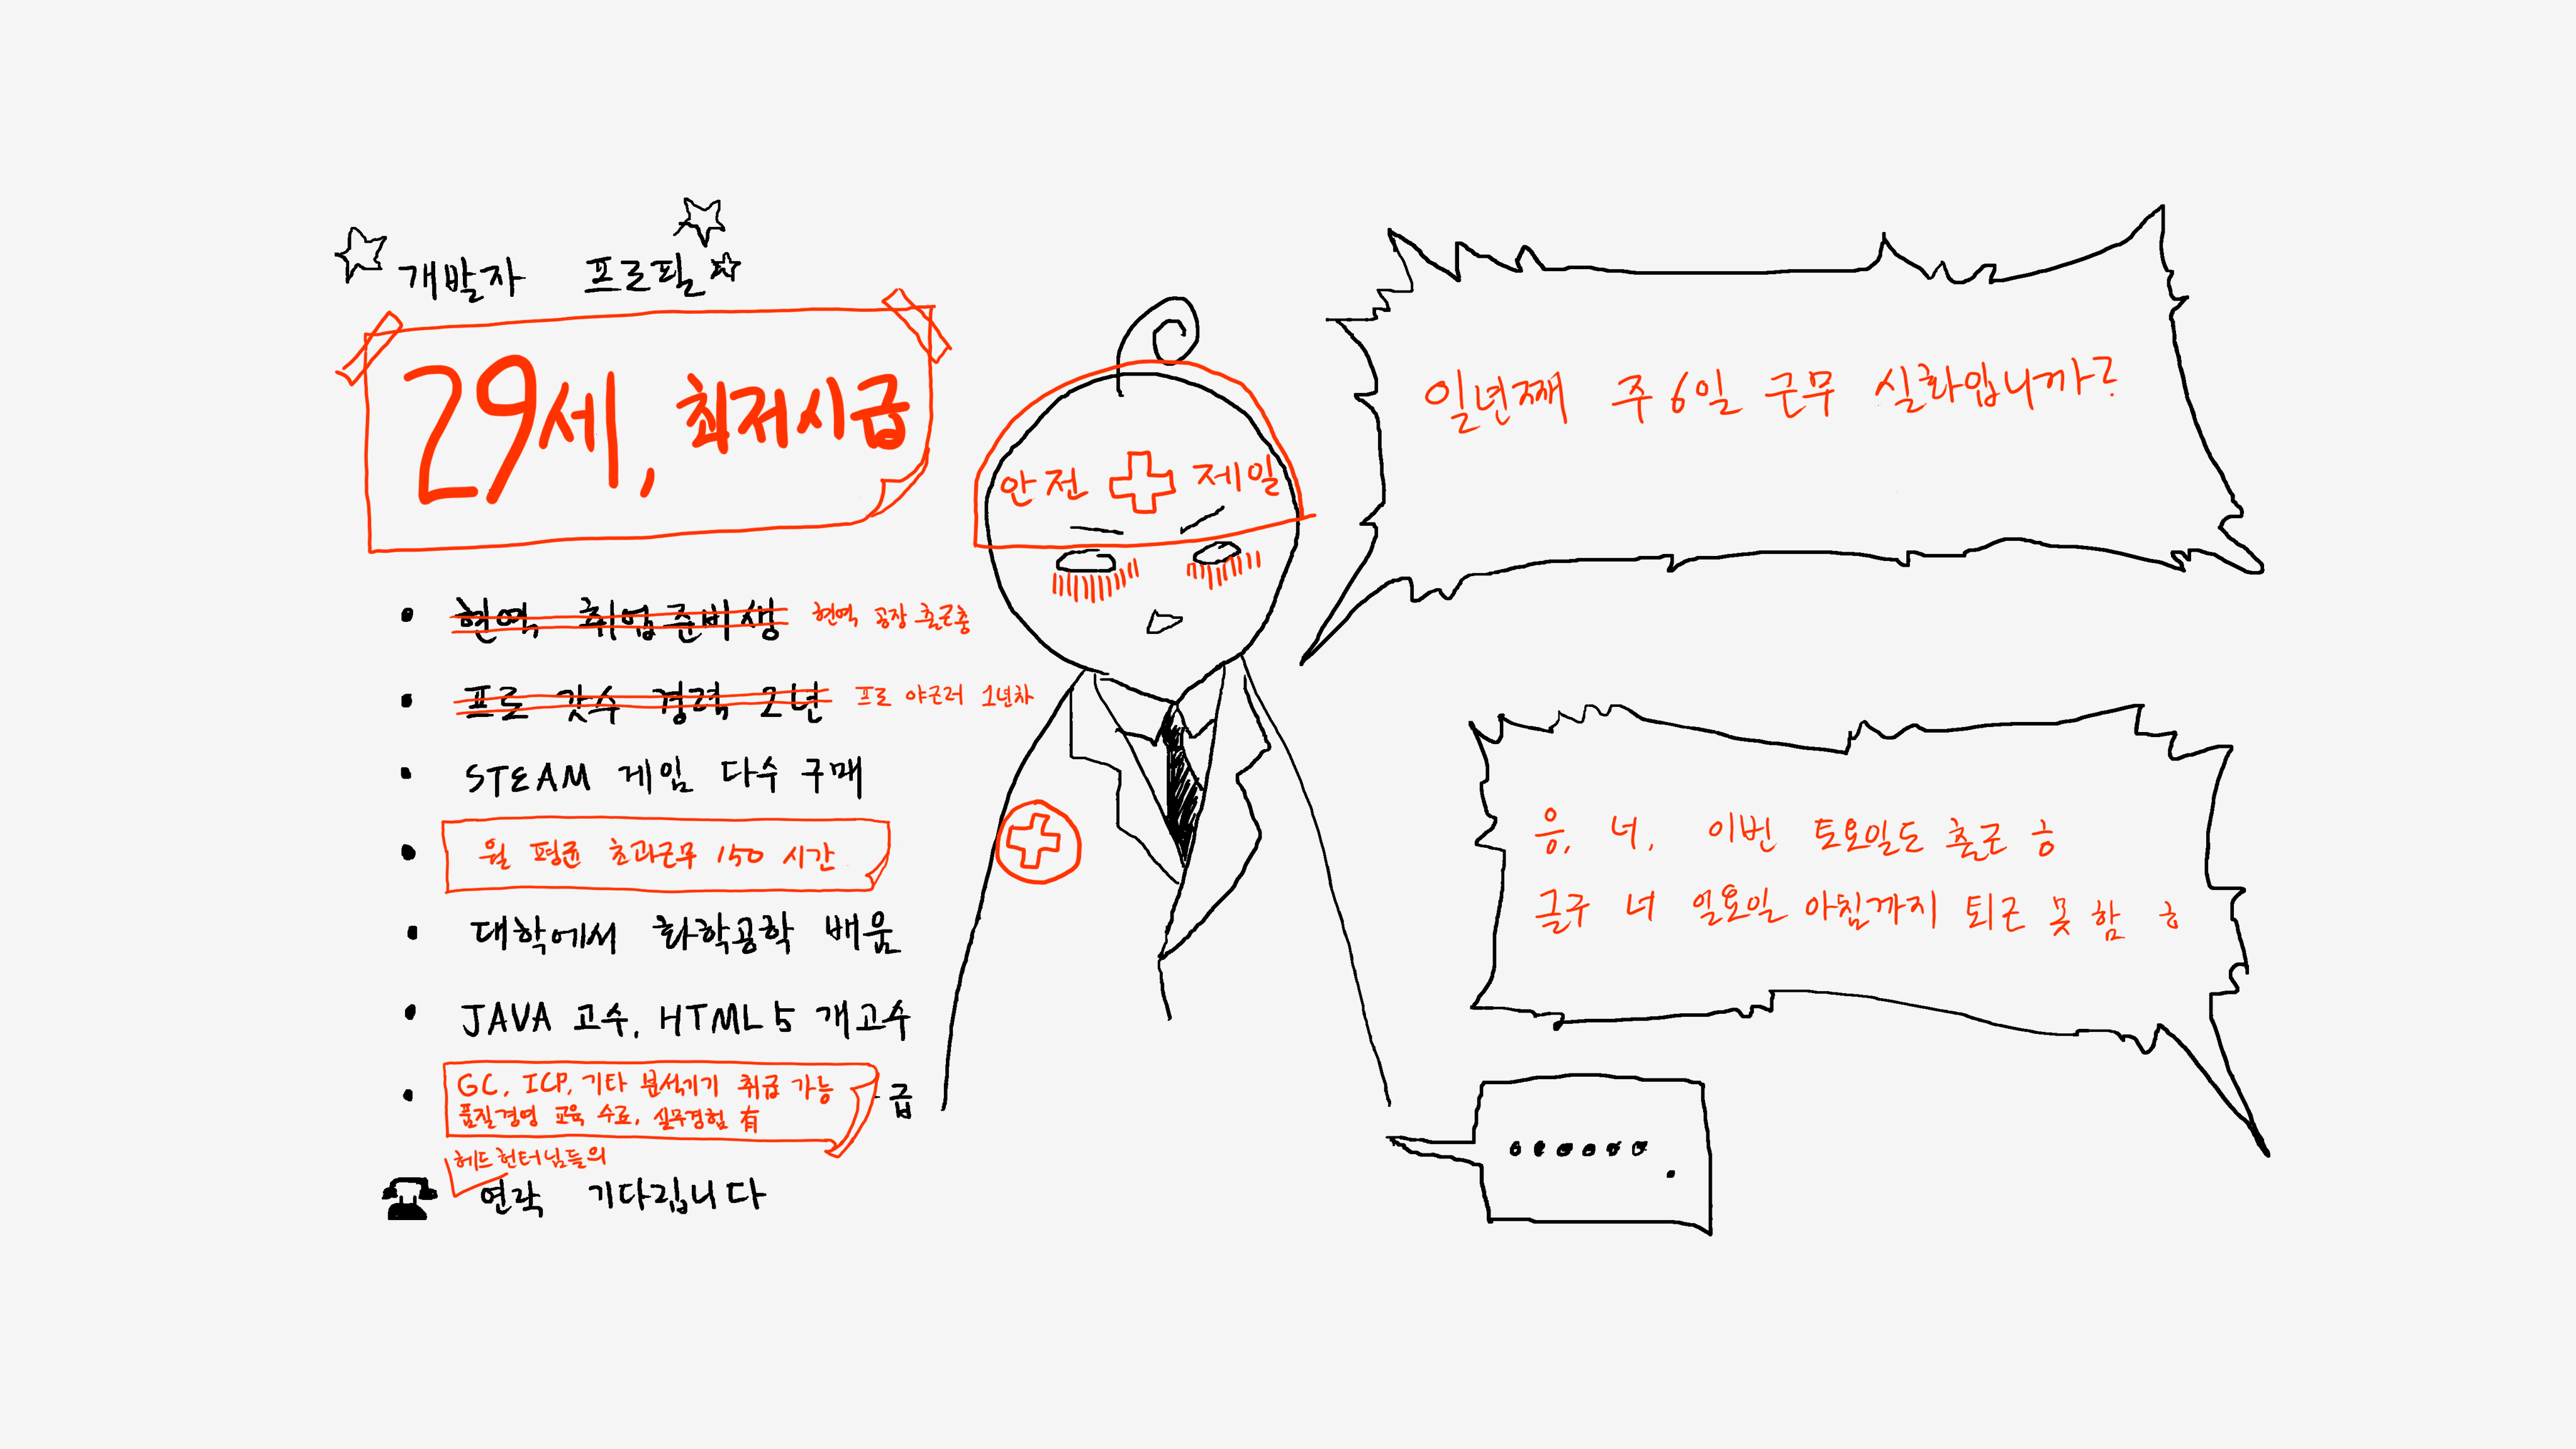 개발자 프로필
29세, 최저시급
현역 취업준비생 현역 공장 출근충
프로 갓수 경력 2년 프로 야근러 1년차
STEAM 게임 다수 구매
월 평균 초과근무 150 시간
대학에서 화학공학 배움
JAVA 고수, HTML5 개고수
GC, ICP, 기타 분석기기 취급 가능
품질경영 교육 수료, 실무경험 有
급
헤드헌터님들의
연락 기다립니다
안전 제일
일년째 주 6일 근무 실화입니까?
응, 너, 이번 토요일도 출근 ㅎ
글구 너 일요일 아침까지 퇴근 못 함 ㅎ
.......